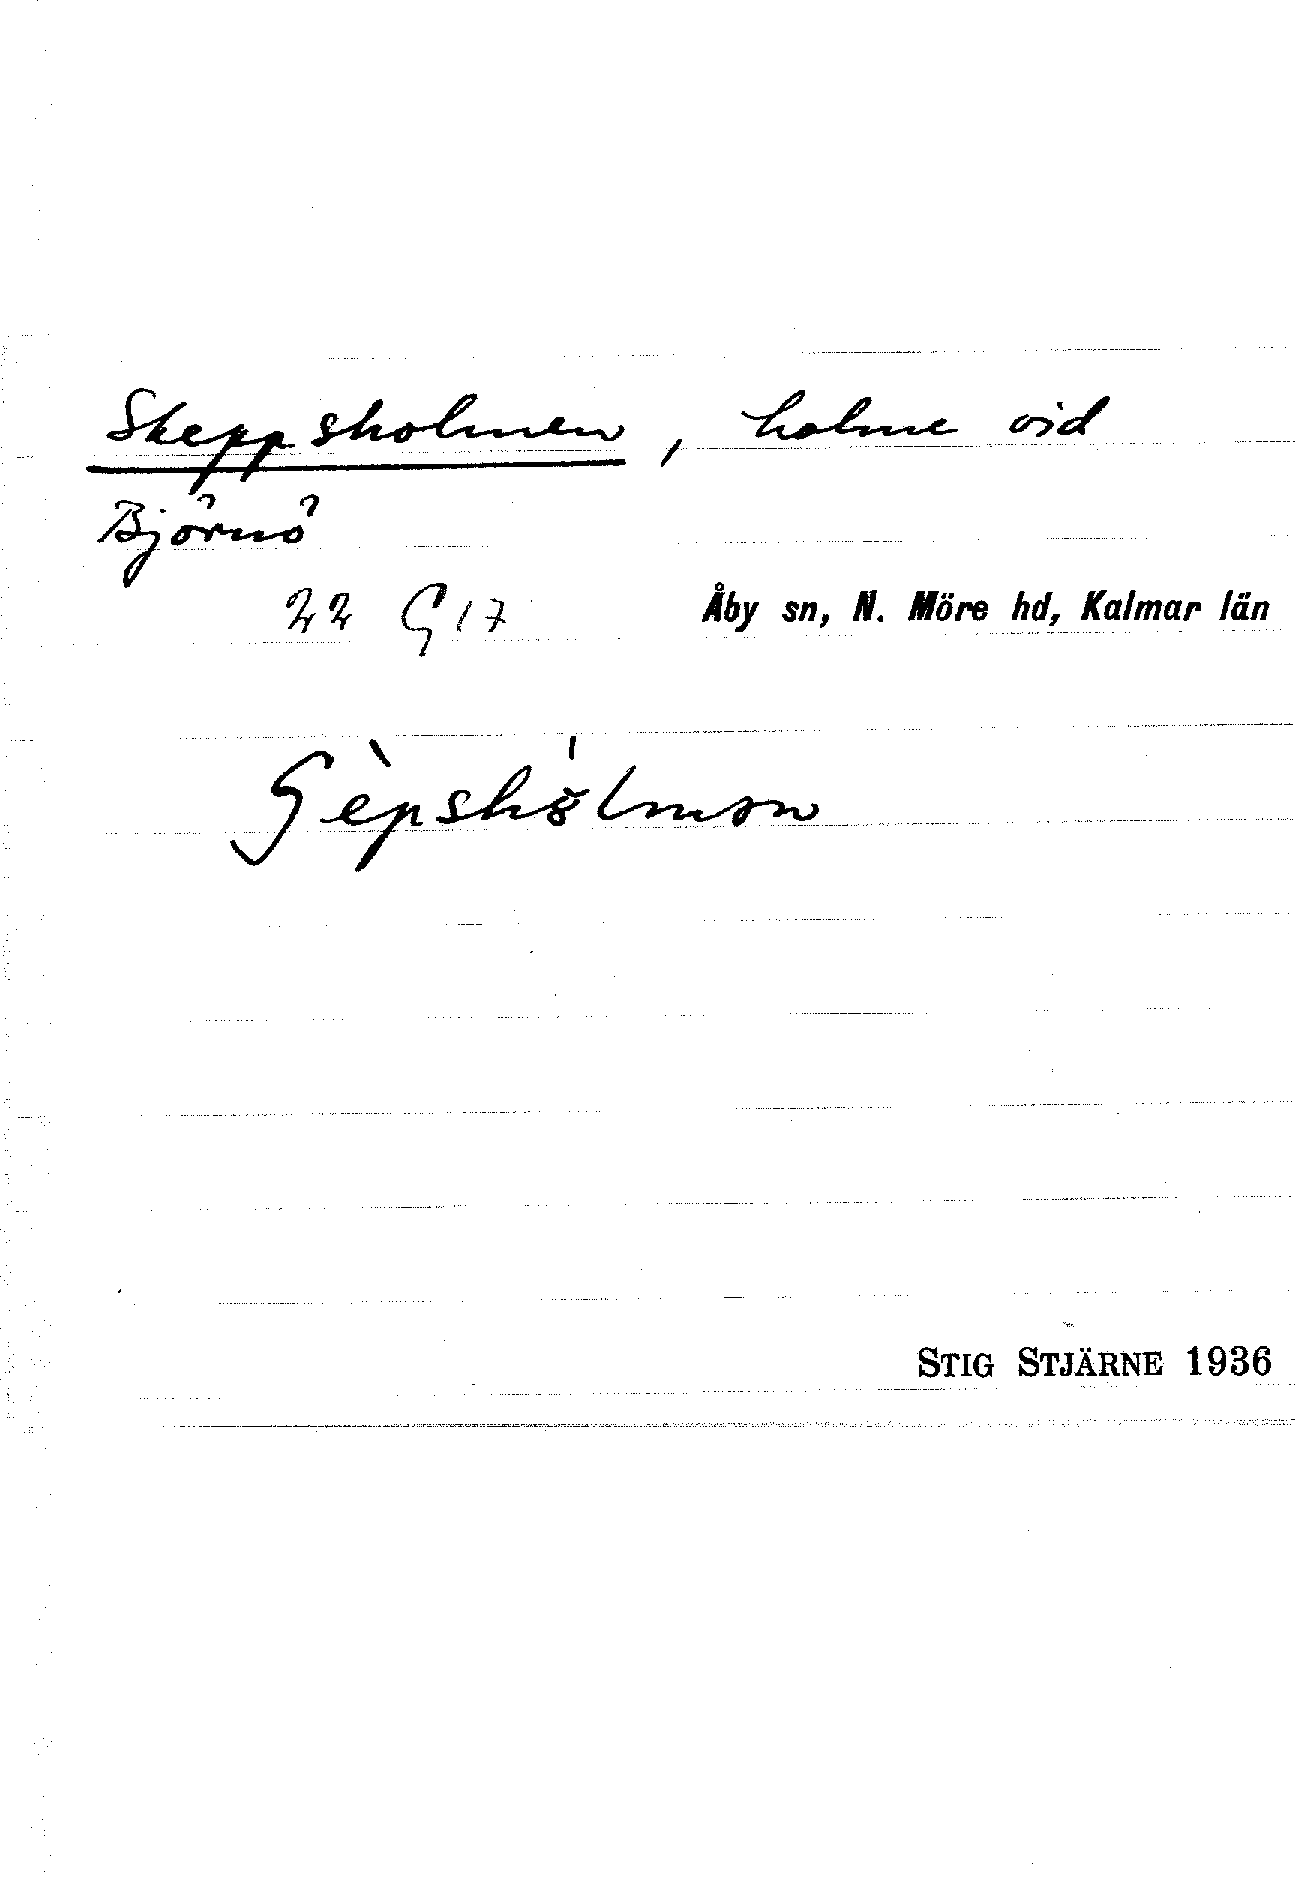 Skeppsholmen, holme vid
Björnö
22 G 17 Åby sn, N. Möre hd, Kalmar län
STIG STJÄRNE 1936